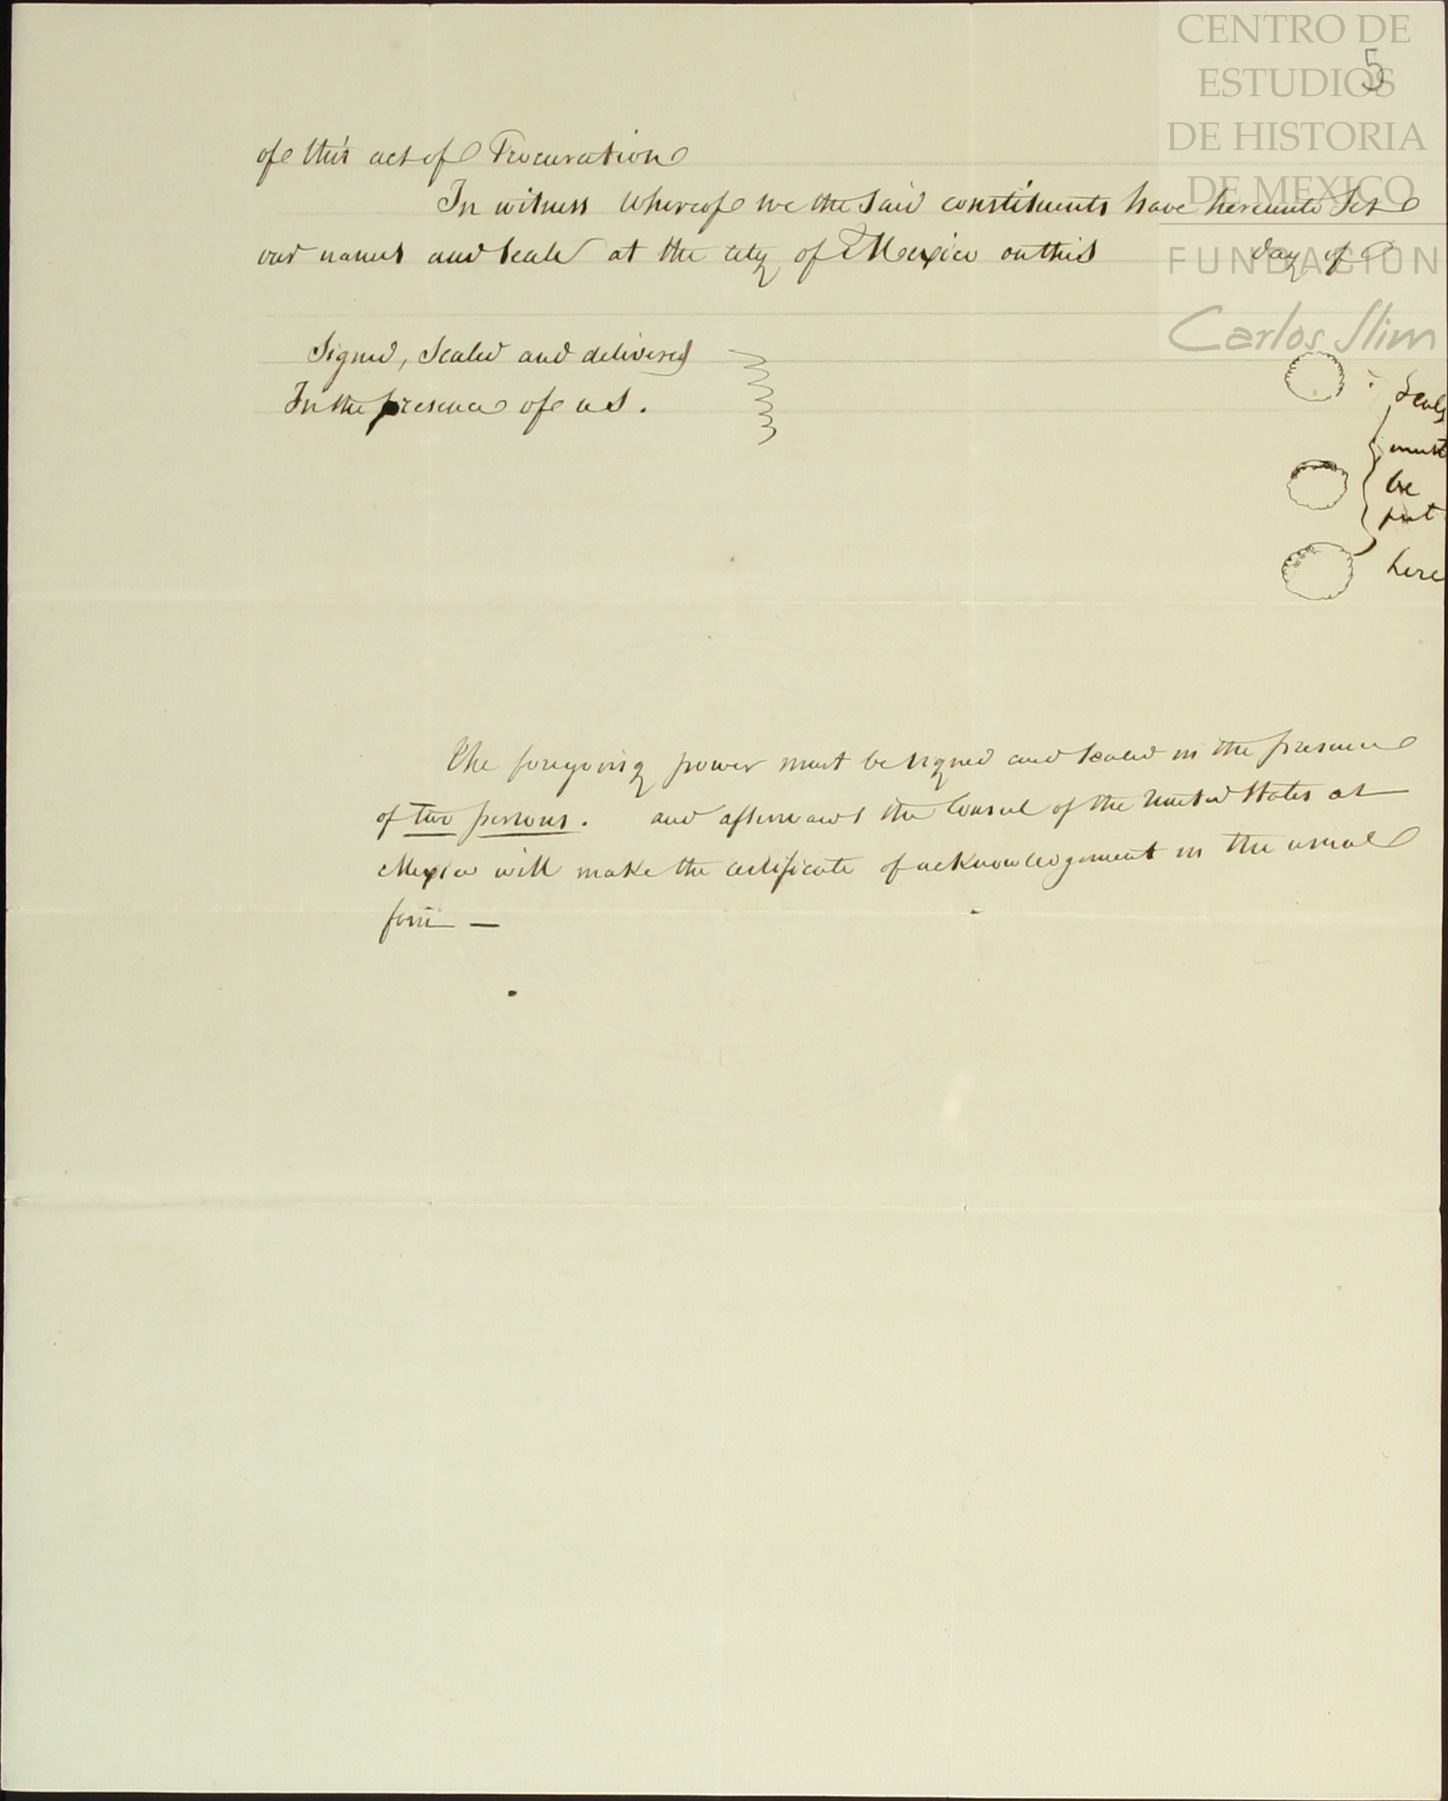 CENTRO DE
ESTUDIOS
DE HISTORIA
DE MEXICO
FUNDACION
Carlos Slim
5
of this act of Procuration
In witness whereof we the said constituents have hereunto Set
our names and seals at the city of Mexico on this day of
Signed, Sealed and delivered
In the presence of us.
Seals
must
be
put
here
The foregoing power must be signed and sealed in the presence
of two persons. and afterwards the Consul of the United States at
Mexico will make the certificate of acknowledgement in the usual
form —